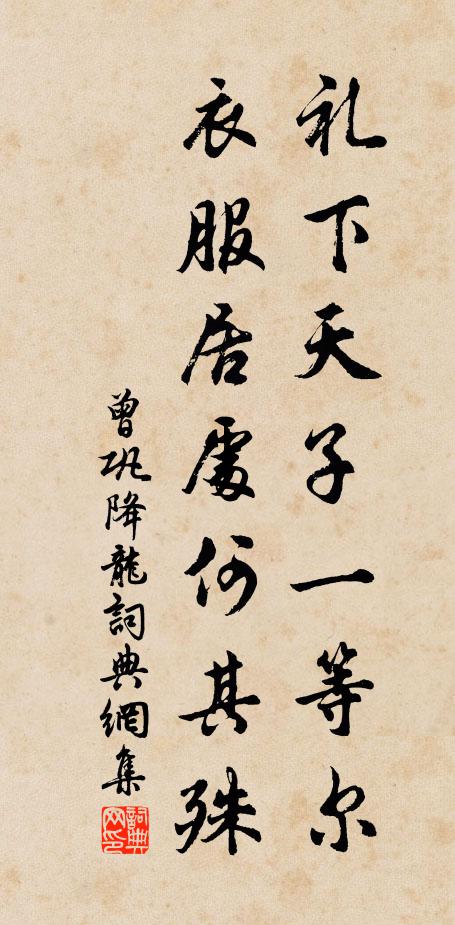 礼下天子一等尔
衣服居處何其殊
曾巩降龍詞典網集
詞典网印